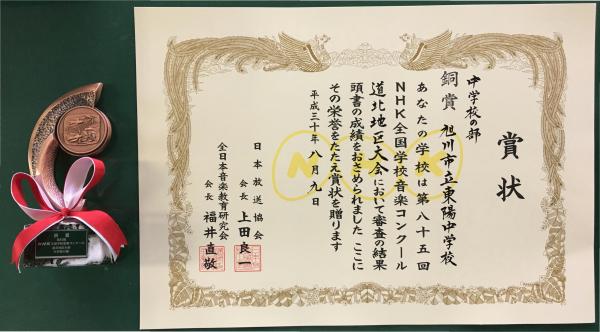 賞状
中学校の部
銅賞 旭川市立東陽中学校
あなたの学校は第八十五回
NHK全国学校音楽コンクール
道北地区大会において審査の結果
頭書の成績をおさめられました ここに
その栄誉をたたえ賞状を贈ります
平成三十年八月九日
日本放送協会
会長 上田良一
全日本音楽教育研究会
会長 福井直敬
NHK